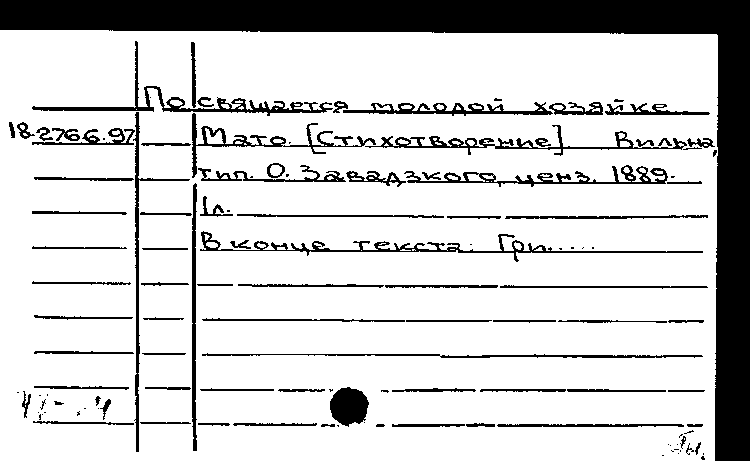 Посвящается молодой хозяйке
18.276.6.97 Мато. [Стихотворение] Вильна,
тип. О. Завадзкого, ценз. 1889.
1л.
В конце текста: Гри.....